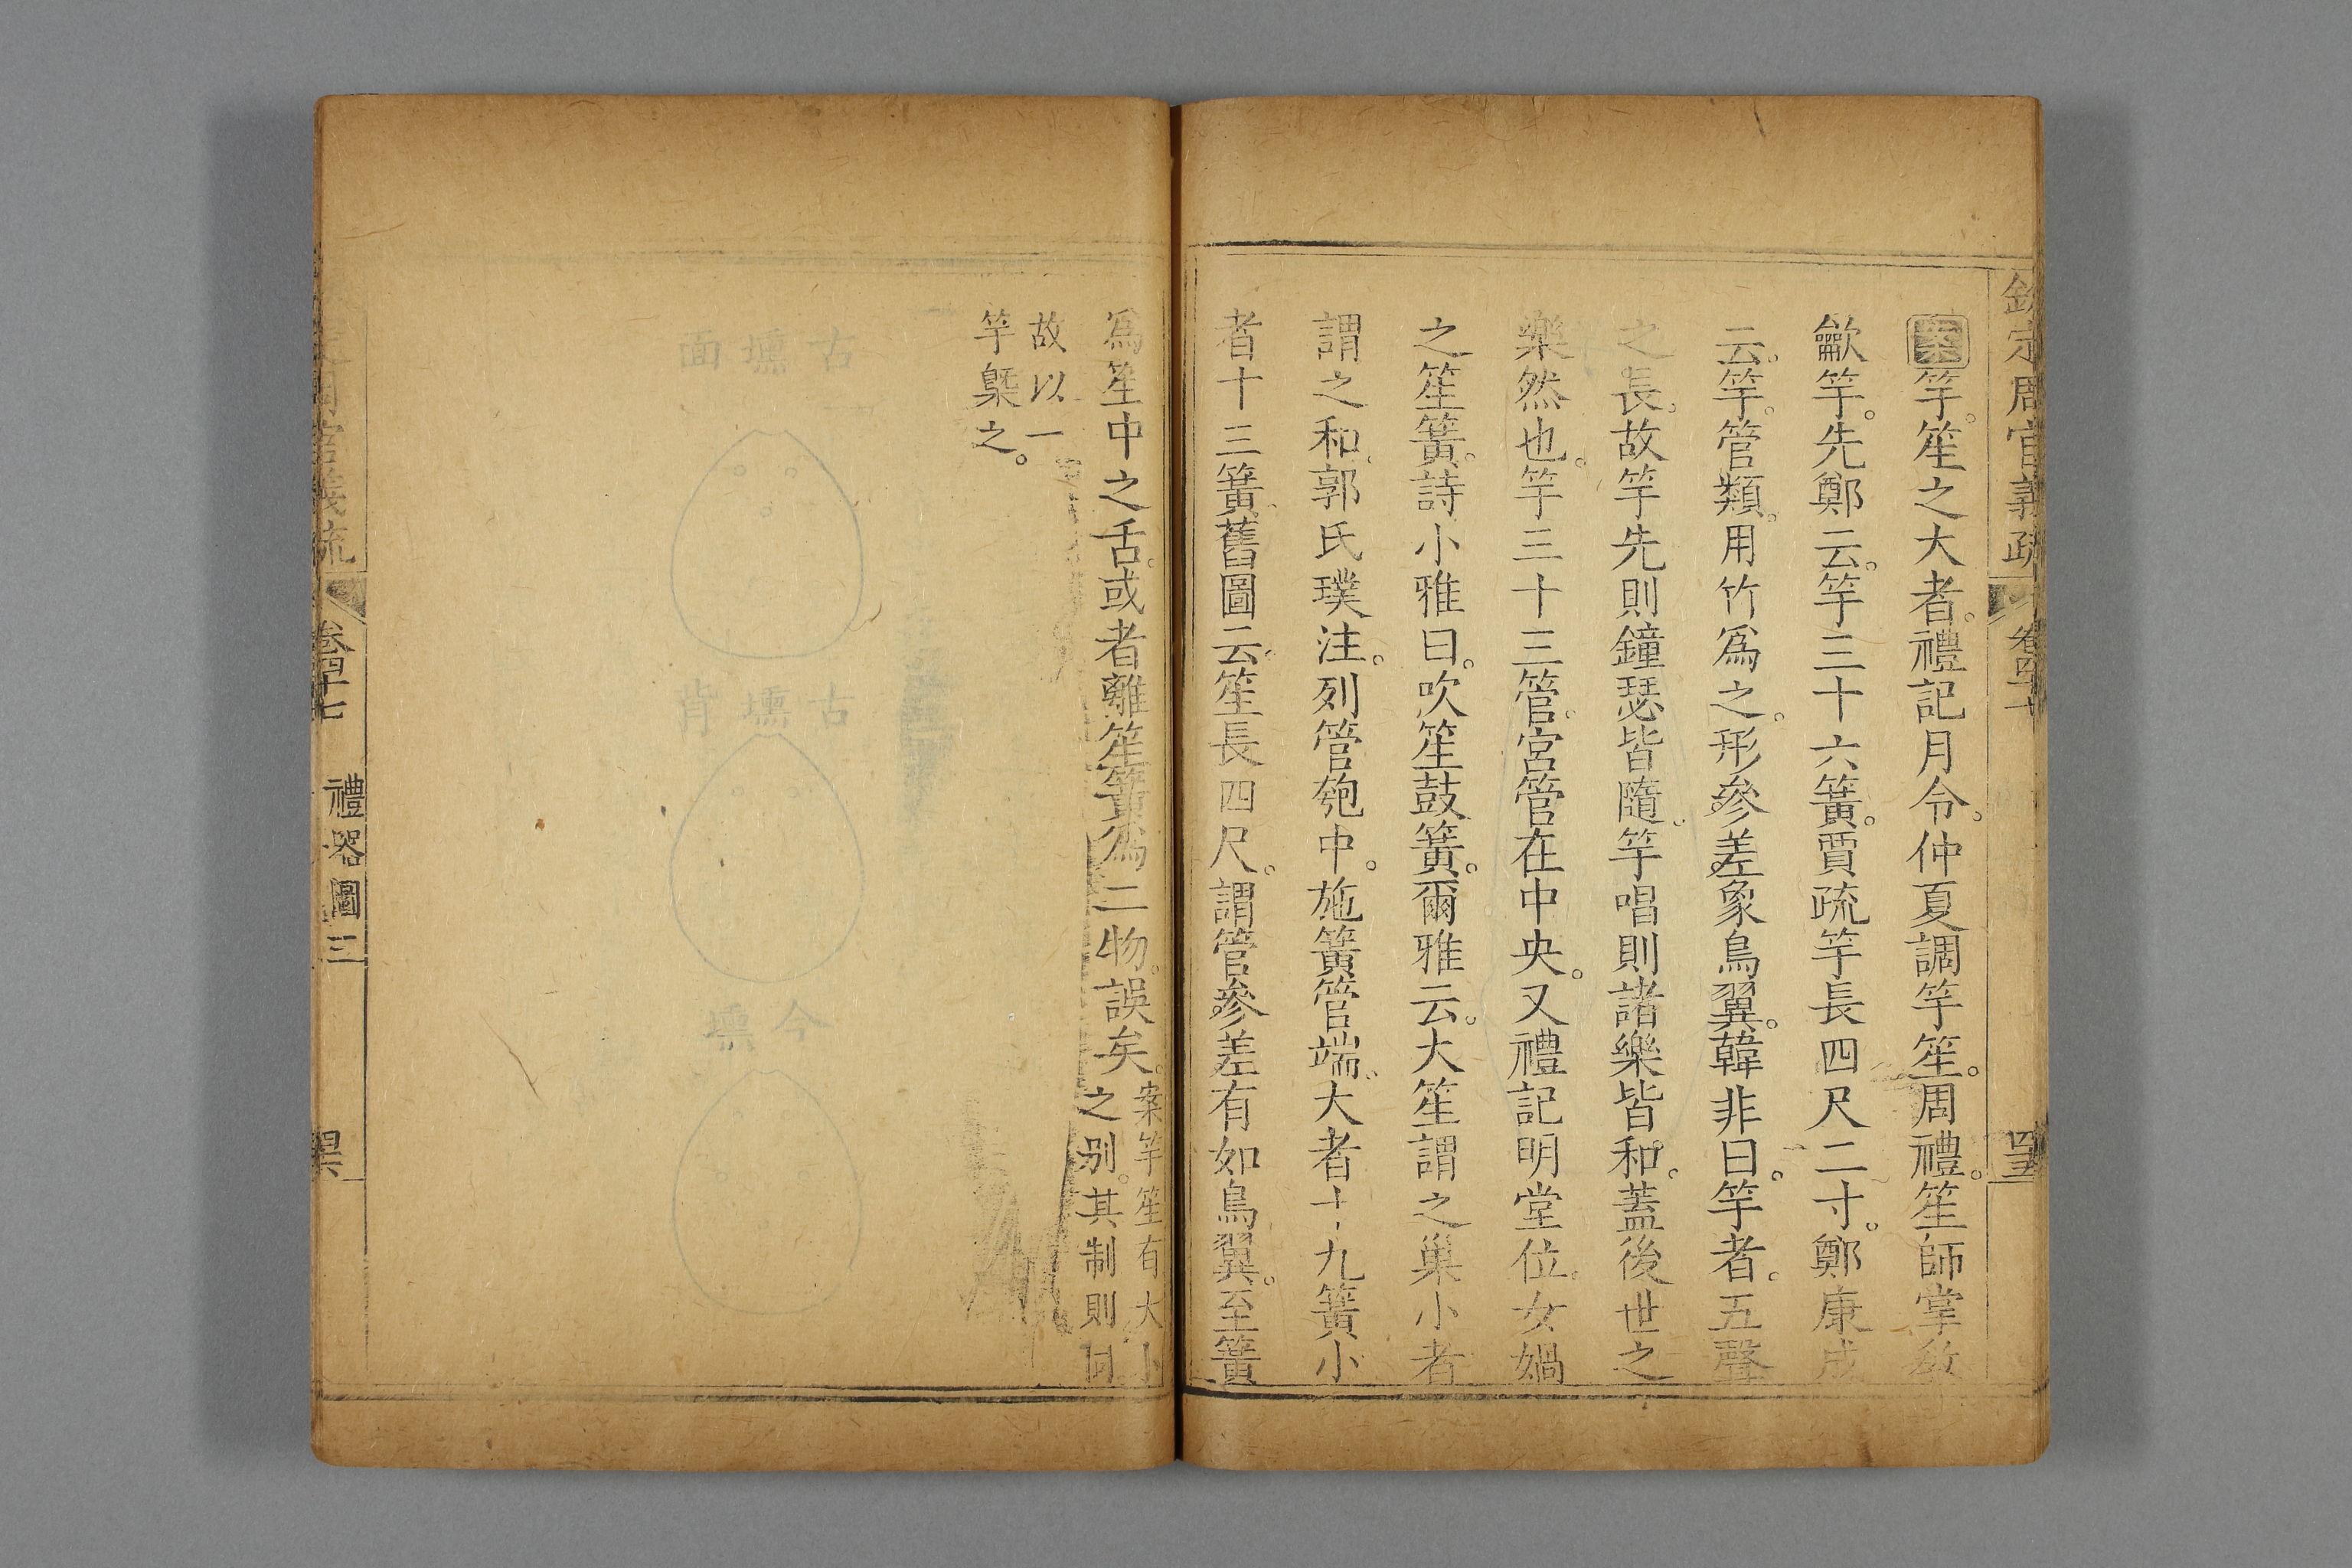 欽定周官義疏 卷四十七 四五
案竽。笙之大者。禮記月令。仲夏調竽笙。周禮。笙師掌敎
龡竽。先鄭云。竽三十六簧。賈疏竽長四尺二寸。鄭康成
云。竽。管類。用竹爲之。形參差象鳥翼。韓非曰。竽者。五聲
之長。故竽先則鐘瑟皆隨。竽唱則諸樂皆和。蓋後世之
樂然也。竽三十三管。宮管在中央。又禮記明堂位。女媧
之笙簧。詩小雅曰。吹笙鼓簧。爾雅云。大笙謂之巢小者
謂之和。郭氏璞注。列管匏中。施簧管端。大者十九簧小
者十三簧。舊圖云。笙長四尺。謂管參差有如鳥翼。至簧
爲笙中之舌。或者離笙簧爲二物。誤矣。案竽笙有大小
之别。其制則同
故以一
竽槩之。
古壎面
古壎背
今壎
欽定周官義疏 卷四十七 禮器圖三 四六